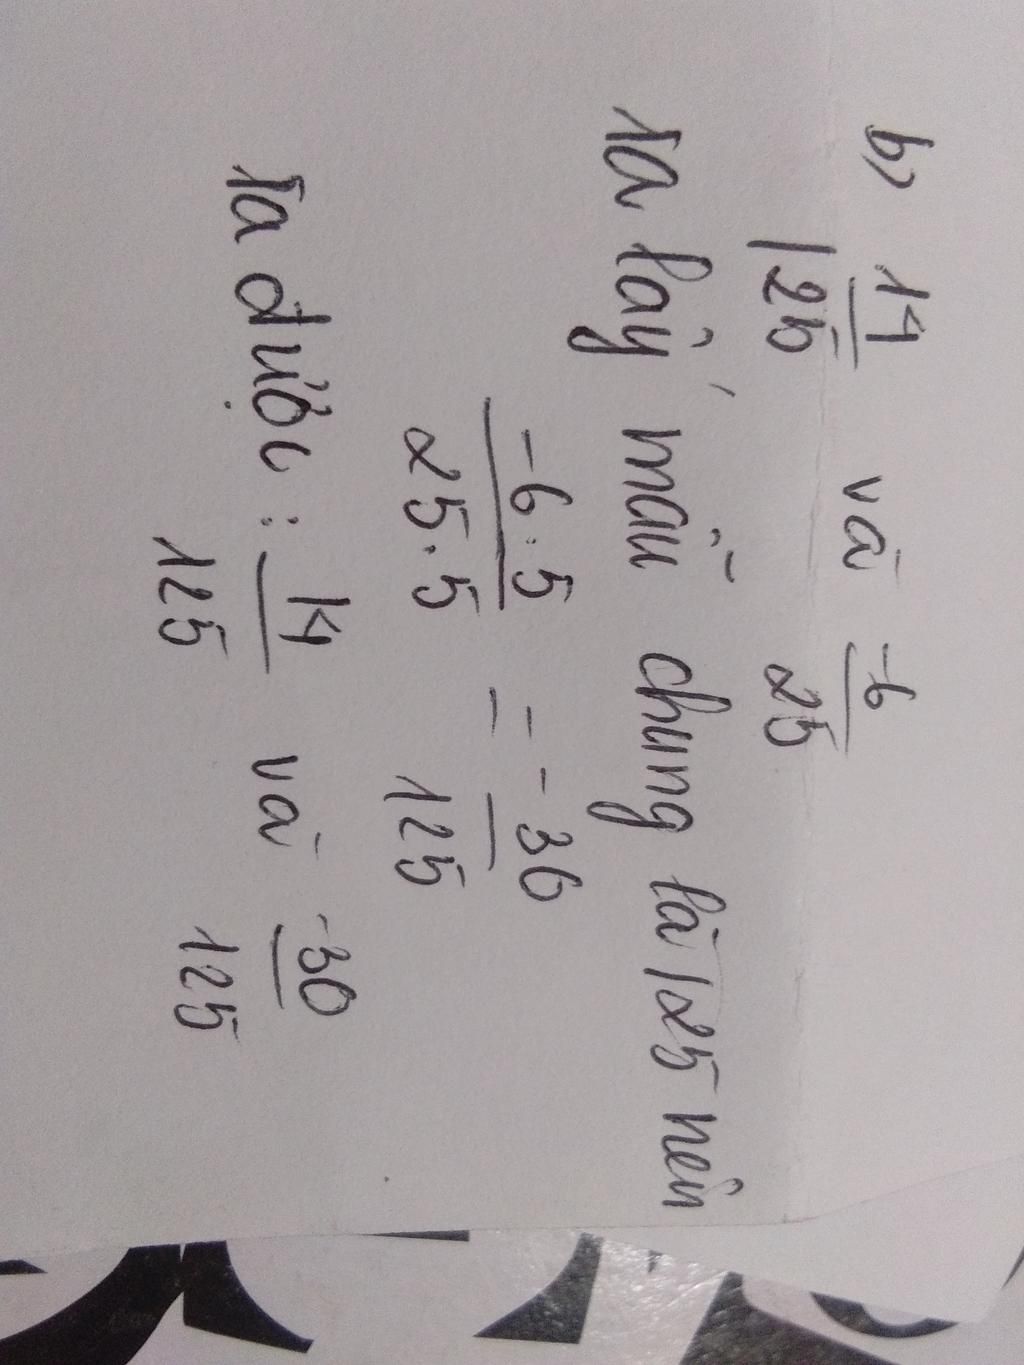 b) 14/125 và -6/25
Ta lấy mẫu chung là 125 nên
-6.5/25.5 = -30/125
Ta được : 14/125 và -30/125